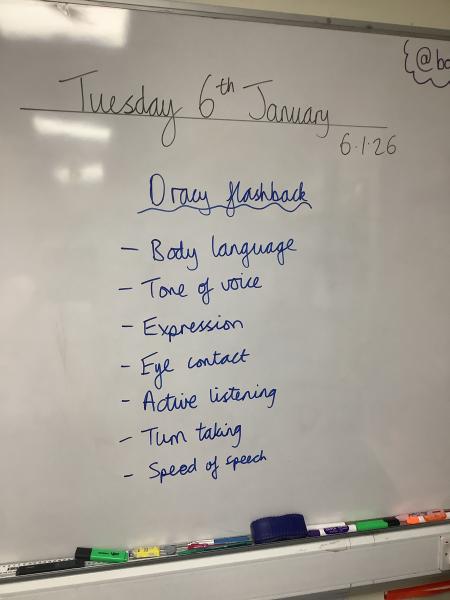 Tuesday 6th January
6.1.26
Oracy flashback
- Body language
- Tone of voice
- Expression
- Eye contact
- Active listening
- Turn taking
- Speed of speech